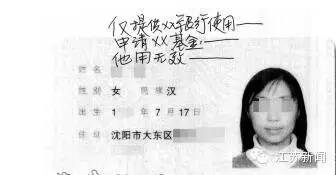 仅提供XX银行使用——
申请XX基金——
他用无效——
姓名
性别 女 民族 汉
出生 1 年 7 月 17 日
住址 沈阳市大东区
江苏新闻